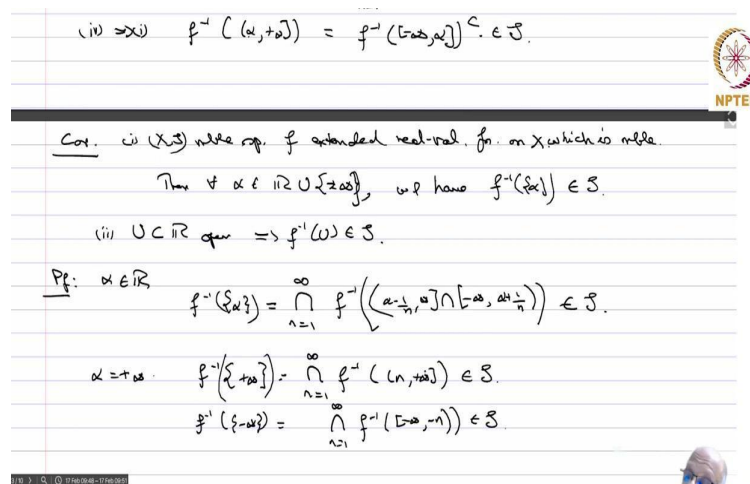 (iv) => (i) f⁻¹((α,+∞]) = f⁻¹([-∞,α])ᶜ. ∈ S.
NPTEL
Cor. (i) (X,S) mble sp. f extended real-val. fn. on X which is mble.
Then ∀ α ∈ ℝ ∪ {±∞}, we have f⁻¹({α}) ∈ S.
(ii) U ⊂ ℝ open => f⁻¹(U) ∈ S.
Pf: α ∈ ℝ
f⁻¹({α}) = ∞ ∩ n=1 f⁻¹((α-1/n, ∞] ∩ [-∞, α+1/n)) ∈ S.
α = +∞. f⁻¹({+∞}) = ∞ ∩ n=1 f⁻¹((n,+∞]) ∈ S.
f⁻¹({-∞}) = ∞ ∩ n=1 f⁻¹([-∞,-n)) ∈ S.
3/10 17 Feb 09:48 – 17 Feb 09:51